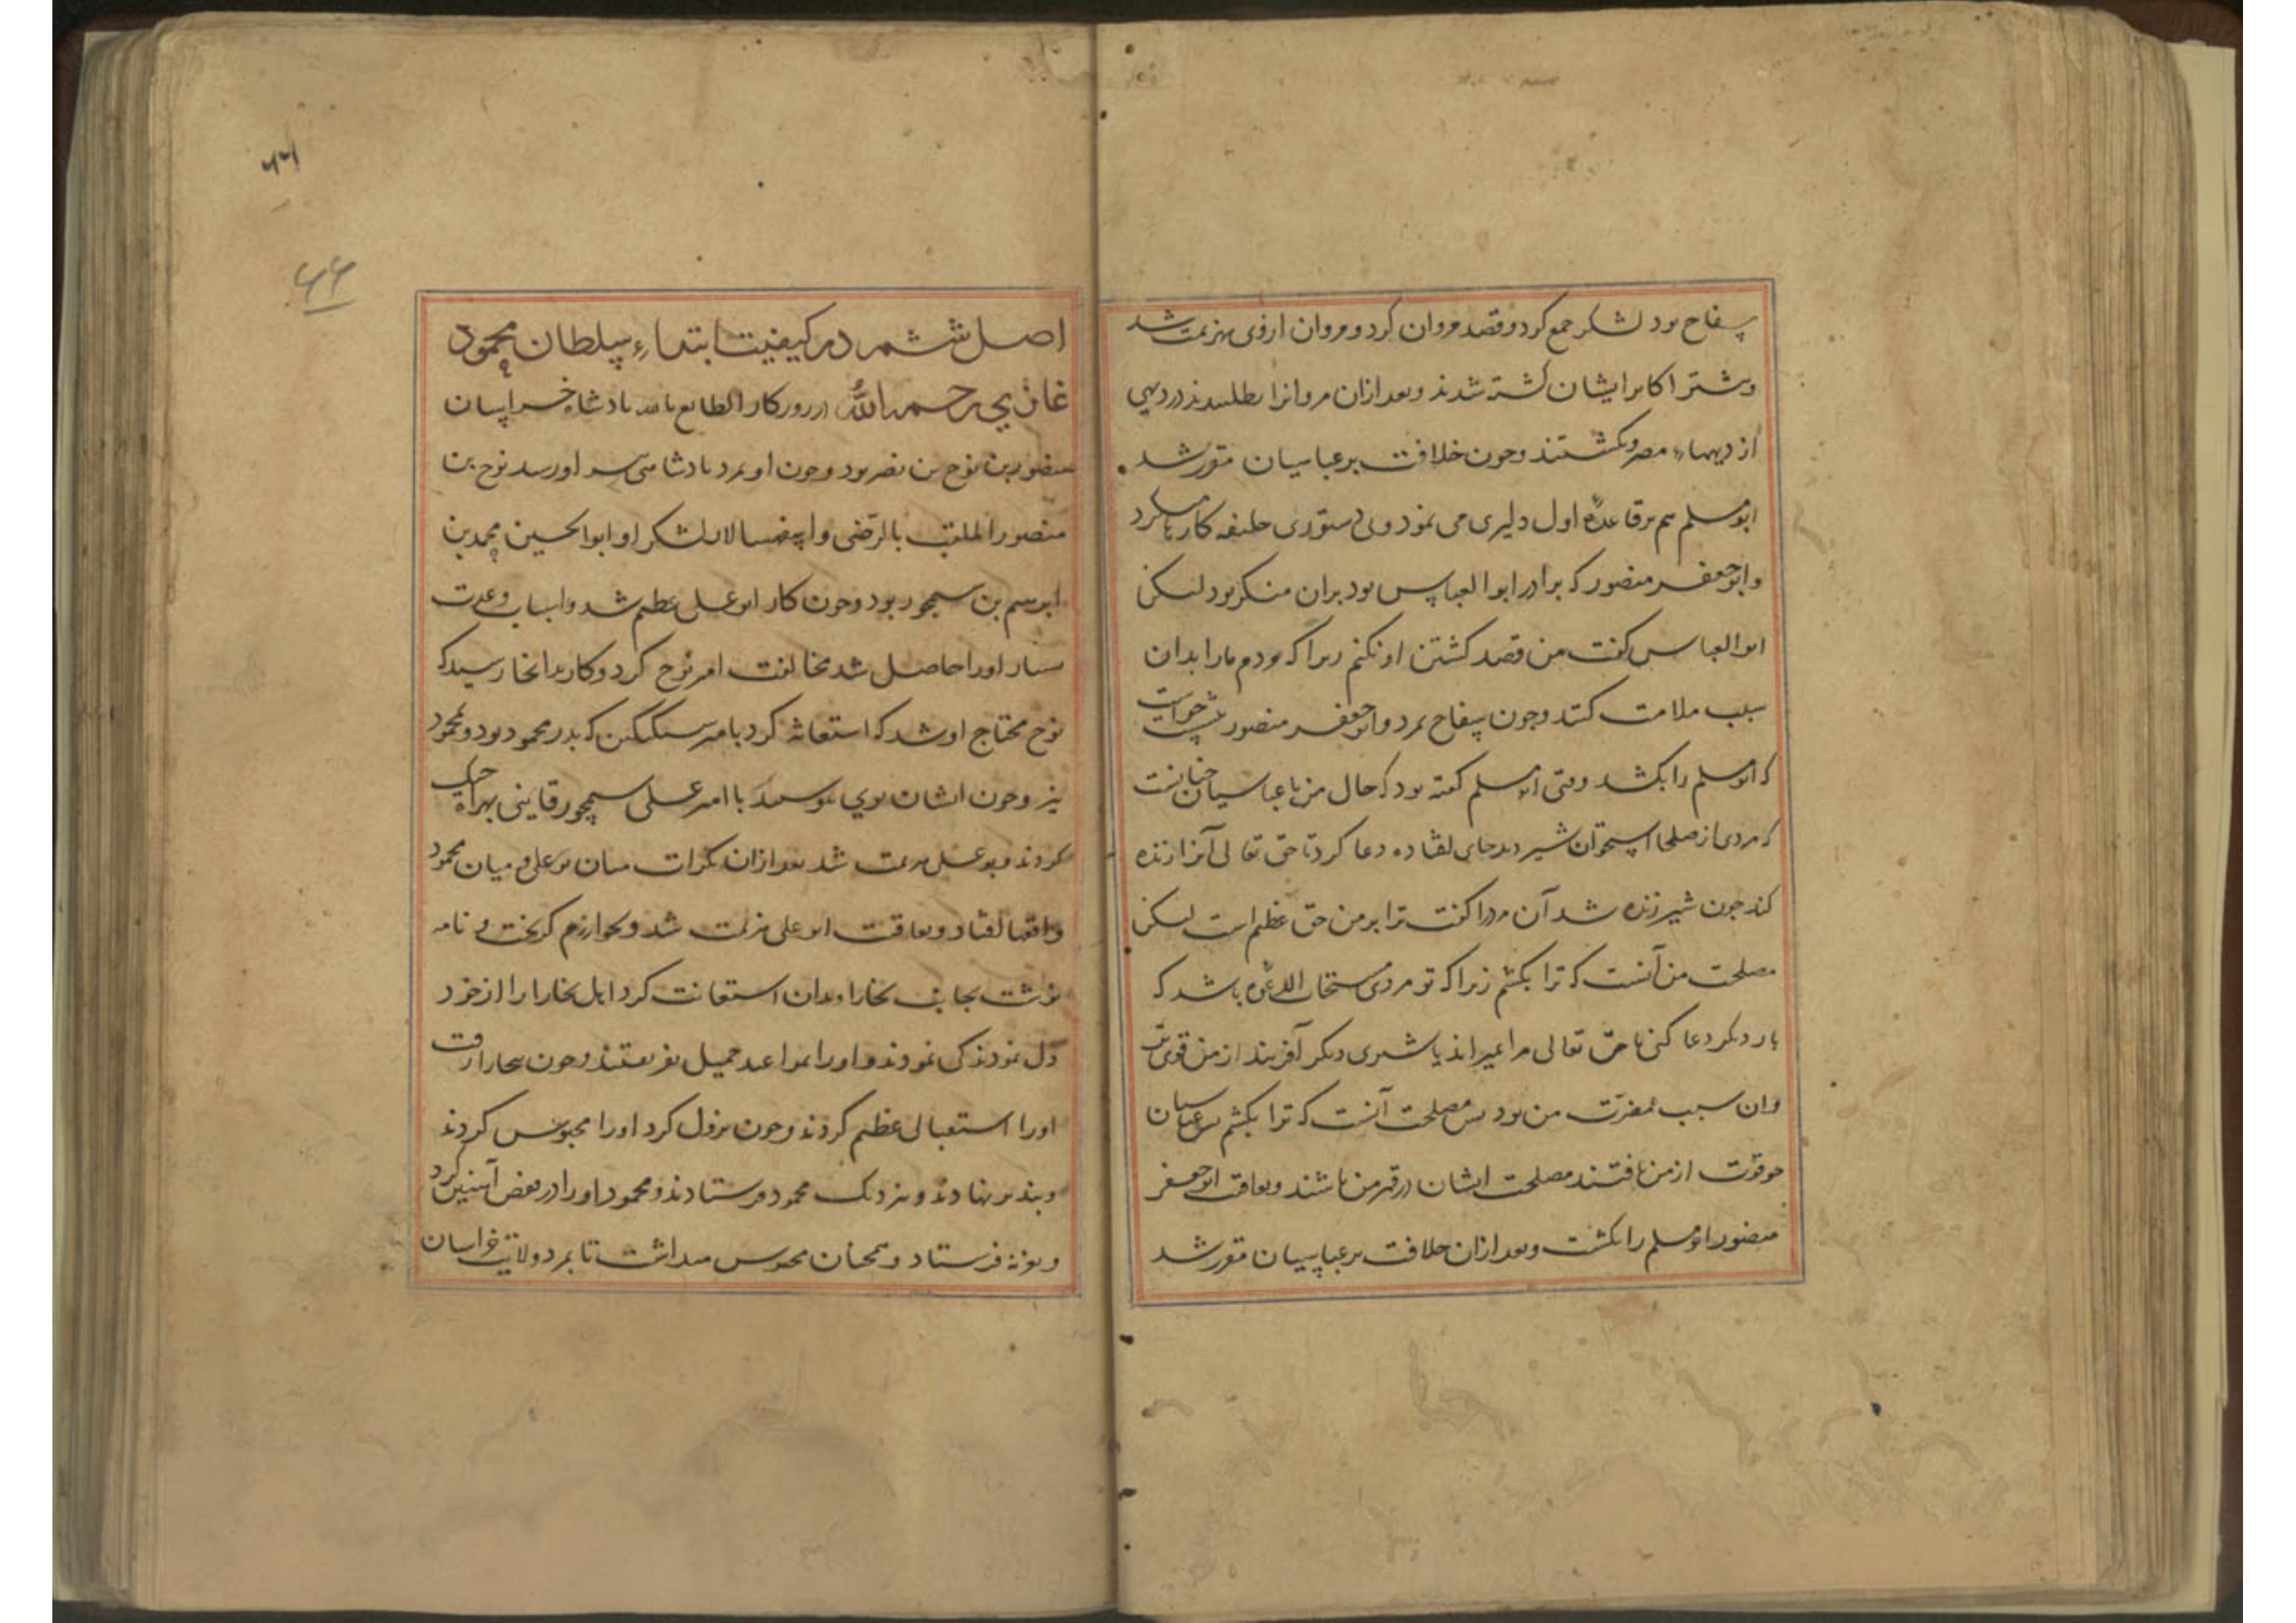 سفاح بود لشکر جمع کرد و قصد مروان کرد و مروان ازوی بهزیمت شد
و بیشتر اکابر ایشان کشته شدند و بعد ازان مروانرا بطلبیدند در دیهی
از دیهاء مصر و بکشتند و چون خلافت بر عباسیان مقرر شد
ابو مسلم هم بر قاعدهٔ اول دلیری می نمود و بی دستوری خلیفه کارها میکرد
و ابو جعفر منصور که برادر ابو العباس بود بران منکر بود لیکن
ابو العباس گفت من قصد کشتن او نکنم زیرا که مردم مارا بدان
سبب ملامت کنند و چون سفاح بمرد و ابو جعفر منصور بنشست خواست
که ابو مسلم را بکشد وقتی ابو مسلم گفته بود که حال من با عباسیان چنانست
که مردی از صلحا استخوان شیر دید جای افتاده دعا کرد تا حق تعالی آنرا زنده
کند چون شیر زنده شد آن مرد را گفت ترا بر من حق عظیم است لیکن
مصلحت من آنست که ترا بکشم زیرا که تو مردی مستجاب الدعوه باشد که
بار دیگر دعا کنی تا حق تعالی مرا بمیراند یا شیری دیگر آفریند از من قوی تر
وان سبب مضرت من بود پس مصلحت آنست که ترا بکشم پس عباسیان
چو قوت از من یافتند مصلحت ایشان در قهر من باشند و بعاقبت ابو جعفر
منصور ابو مسلم را بکشت و بعد ازان خلافت بر عباسیان مقرر شد
۶۶
۶۶
اصل ششم در کیفیت ابتداء سلطان محمود
غازی رحمه الله در روزگار الطایع بالله بادشاه خراسان
منصور بن نوح بن نصر بود و چون او بمرد بادشاهی بپسر او رسید نوح بن
منصور الملقب بالرضی و اسفهسالار لشکر او ابو الحسین محمد بن
ابرهیم بن سیمجور بود و چون کار ابو علی عظیم شد و اسباب و عدت
بسیار اورا حاصل شد مخالفت امیر نوح کرد و کار بدانجا رسید که
نوح محتاج او شد که استعانه کرد بامیر سبکتکین که پدر محمود بود و محمود
نیز و چون ایشان بوی پیوستند با امیر علی سیمجور قاینی بهراه حرب
کردند و بو علی بهزیمت شد بعد ازان بکرات میان بو علی و میان محمود
واقعها افتاد و بعاقبت ابو علی هزیمت شد و بخوارزم گریخت و نامه
نوشت بجانب بخارا و بدان استعانت کرد اهل بخارا را از خود
دل نمودند کی نمودند و اورا بمواعید جمیل بفریفتند و چون ببخارا رفت
اورا استقبالی عظیم کردند و چون نزول کرد اورا محبوس کردند
و بند بر نهادند و بنزدیک محمود فرستادند و محمود اورا در قفص آهنین کرد
و بغزنه فرستاد و همچنان محبوس میداشت تا بمرد و ولایت خراسان